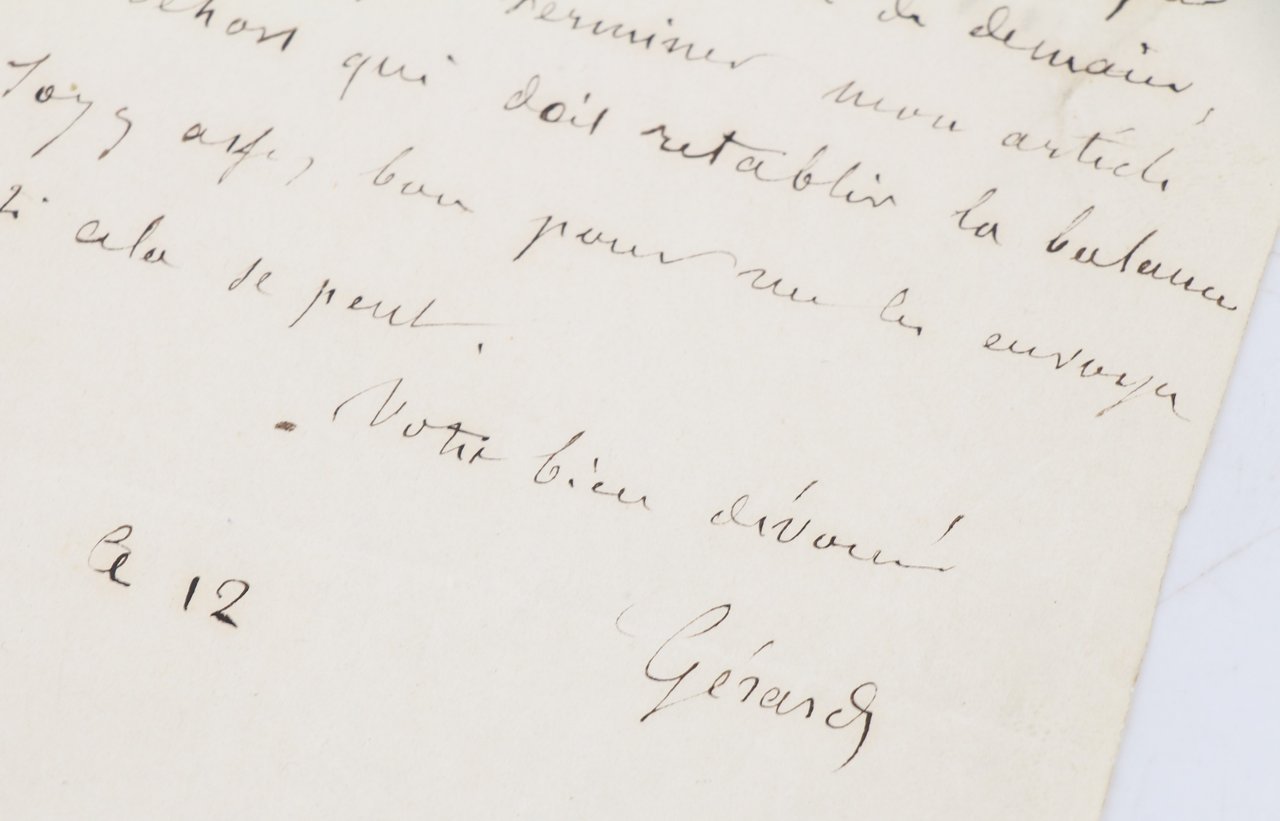 de demain,
terminer mon article
qui doit retablir la balance
Soyez assez bon pour me les envoyer
si cela se peut.
Votre bien dévoué
Gérard
le 12